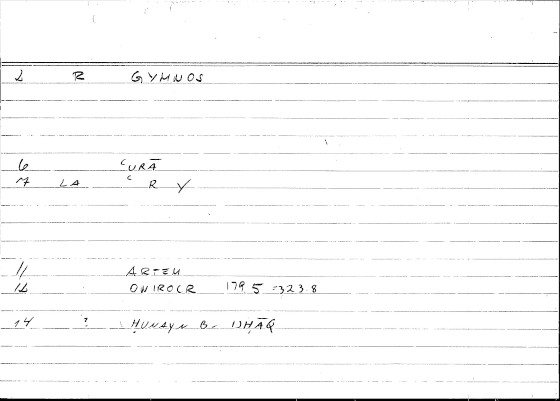 2 R GYMNOS
6 ʿURĀ
7 LA ʿRY
11 ARTEM
12 ONIROCR 179 5 -323 8
14 ? ḤUNAYN B. ISḤĀQ